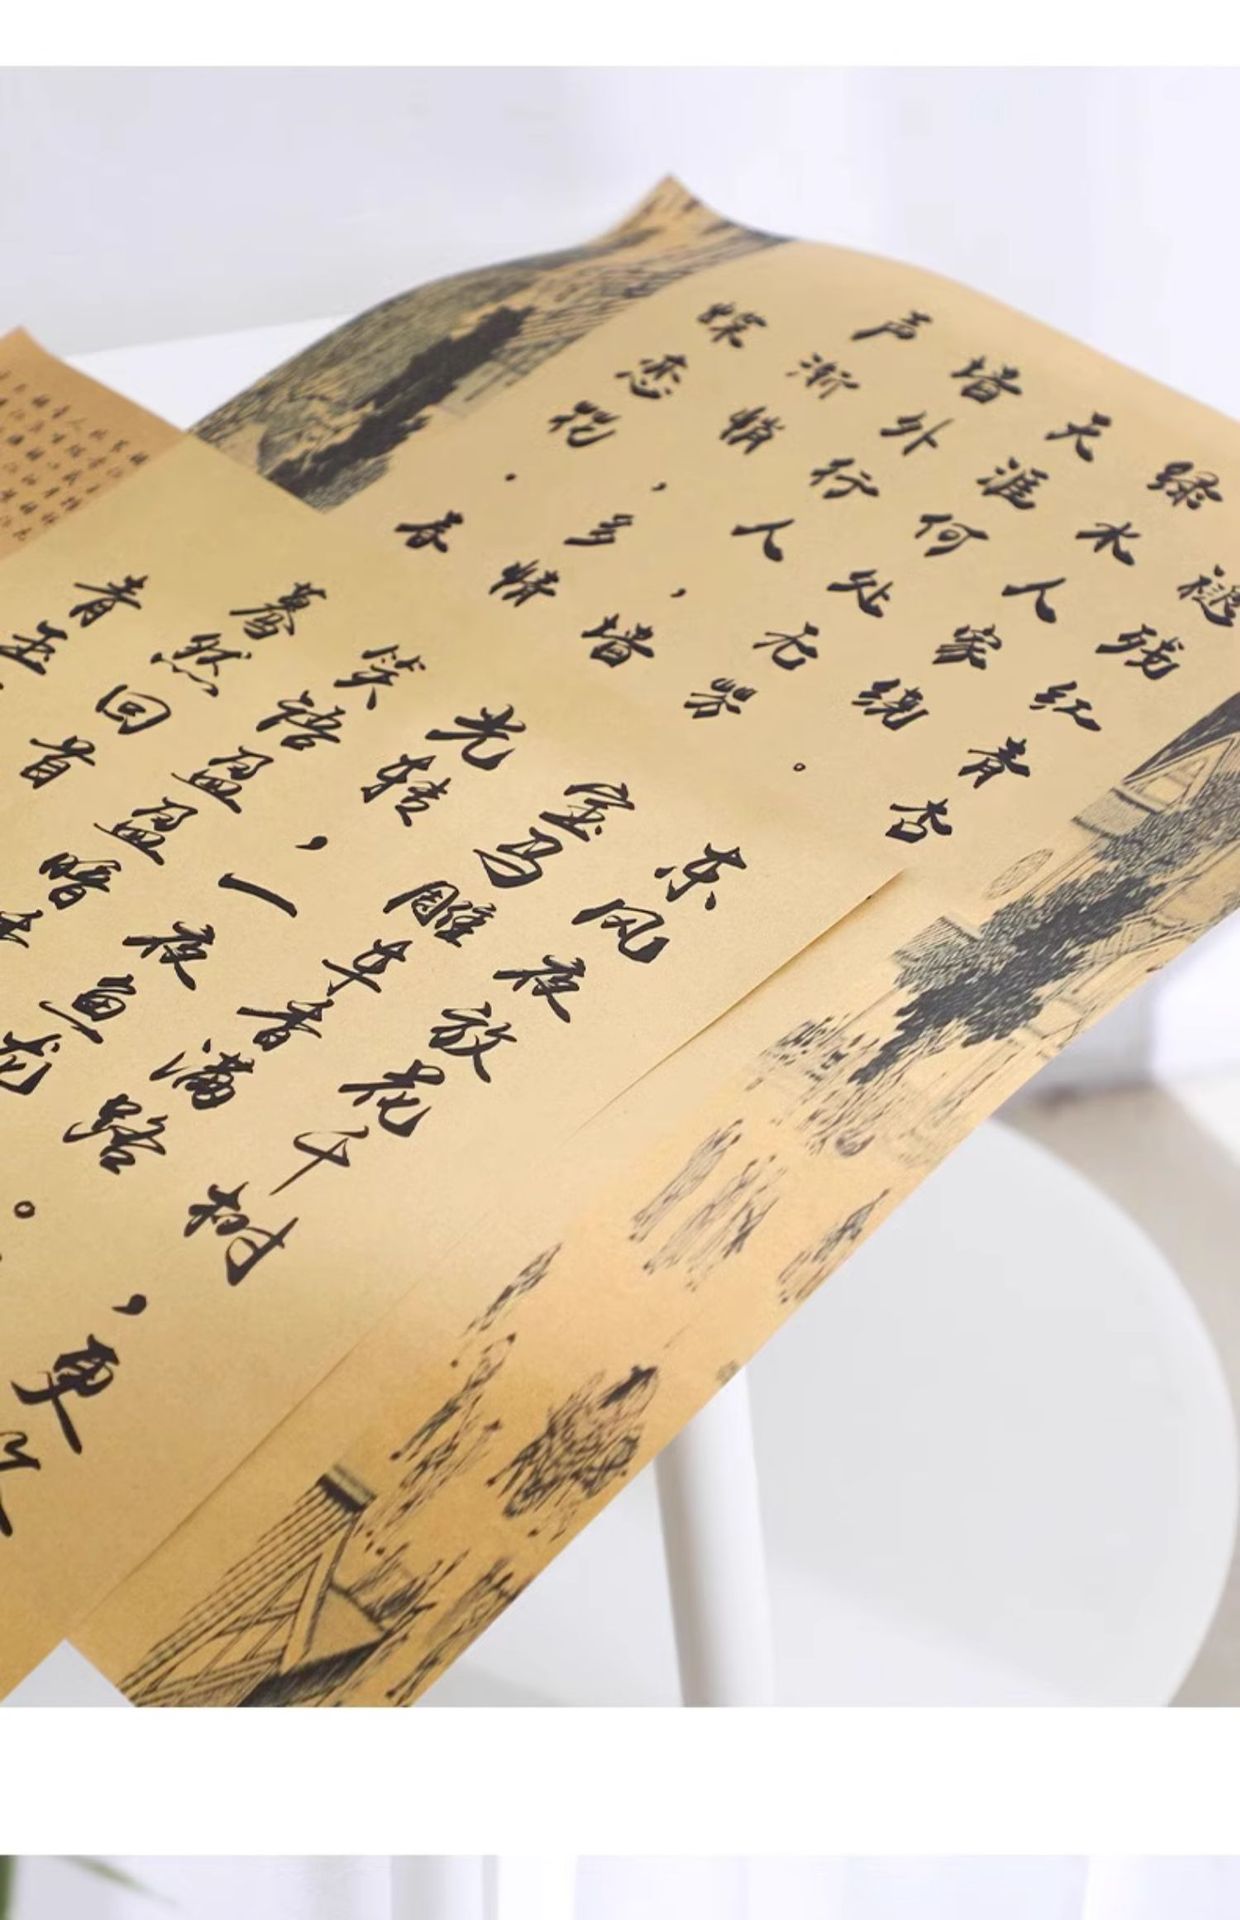 褪残红青杏
绿水人家绕。
天涯何处无芳
墙外行人,墙
声渐悄,多情
蝶恋花·春
东风夜放花千树,更吹
宝马雕车香满路。
光转,一夜鱼龙
笑语盈盈暗去
蓦然回首
青玉